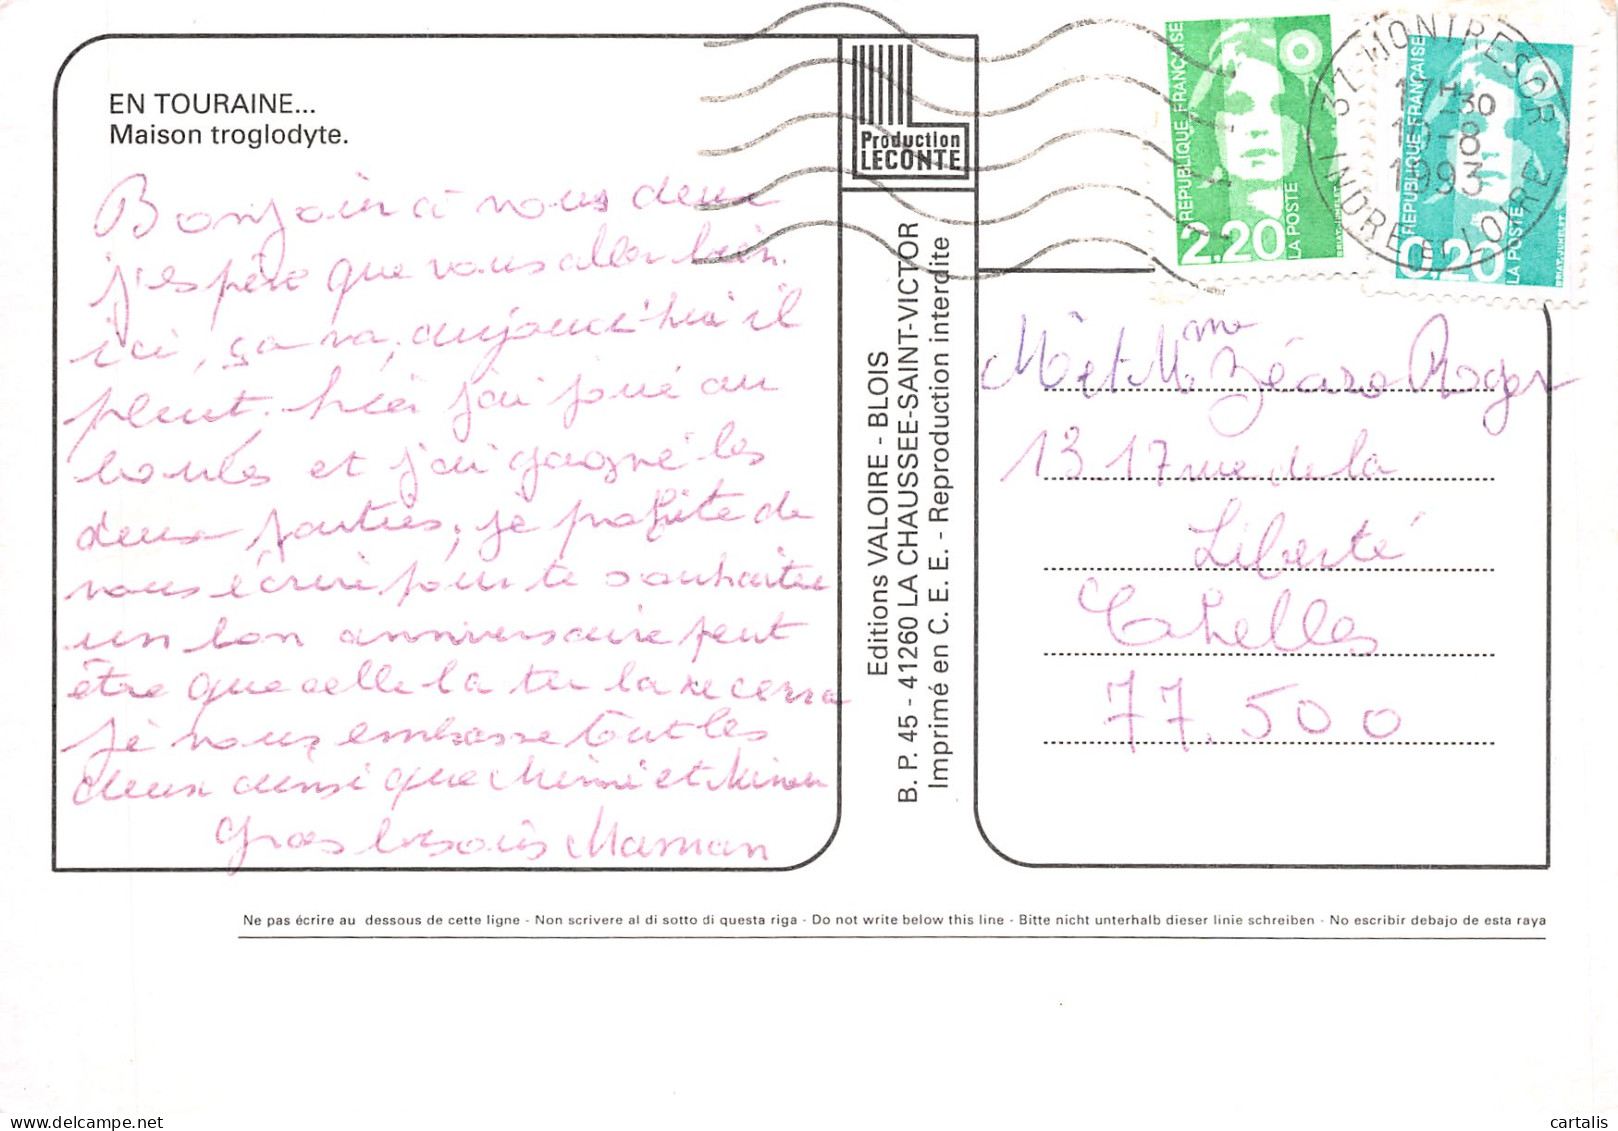 EN TOURAINE...
Maison troglodyte.
Bonjour à vous deux
j'espère que vous aller bien.
ici, ça va, aujourd'hui il
pleut. hier j'ai joué au
boules et j'ai gagné les
deux parties, je profite de
vous écrire pour te souhaiter
un bon anniversaire peut
être que celle la tu la recerra
je vous embrasse tout les
deux ainsi que Mimi et Minou
Gros bisous Maman
Production
LECONTE
Editions VALOIRE - BLOIS
B. P. 45 - 41260 LA CHAUSSEE-SAINT-VICTOR
Imprimé en C. E. E. - Reproduction interdite
REPUBLIQUE FRANÇAISE
2,20
LA POSTE
BRIAT-JUMELET
REPUBLIQUE FRANÇAISE
0,20
LA POSTE
BRIAT-JUMELET
37 MONTRESOR
17H30
-8
1993
INDRE ET LOIRE
Mr et Mme Roger
13 17 rue de la
Liberté
Cahelles
77.500
Ne pas écrire au dessous de cette ligne - Non scrivere al di sotto di questa riga - Do not write below this line - Bitte nicht unterhalb dieser linie schreiben - No escribir debajo de esta raya
cartalis